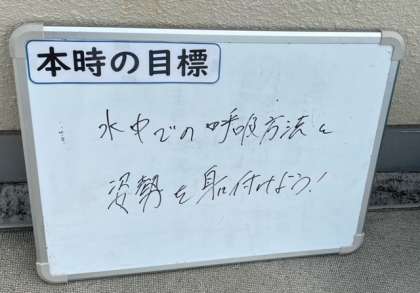 本時の目標
水中での呼吸方法と
姿勢を身に付けよう!